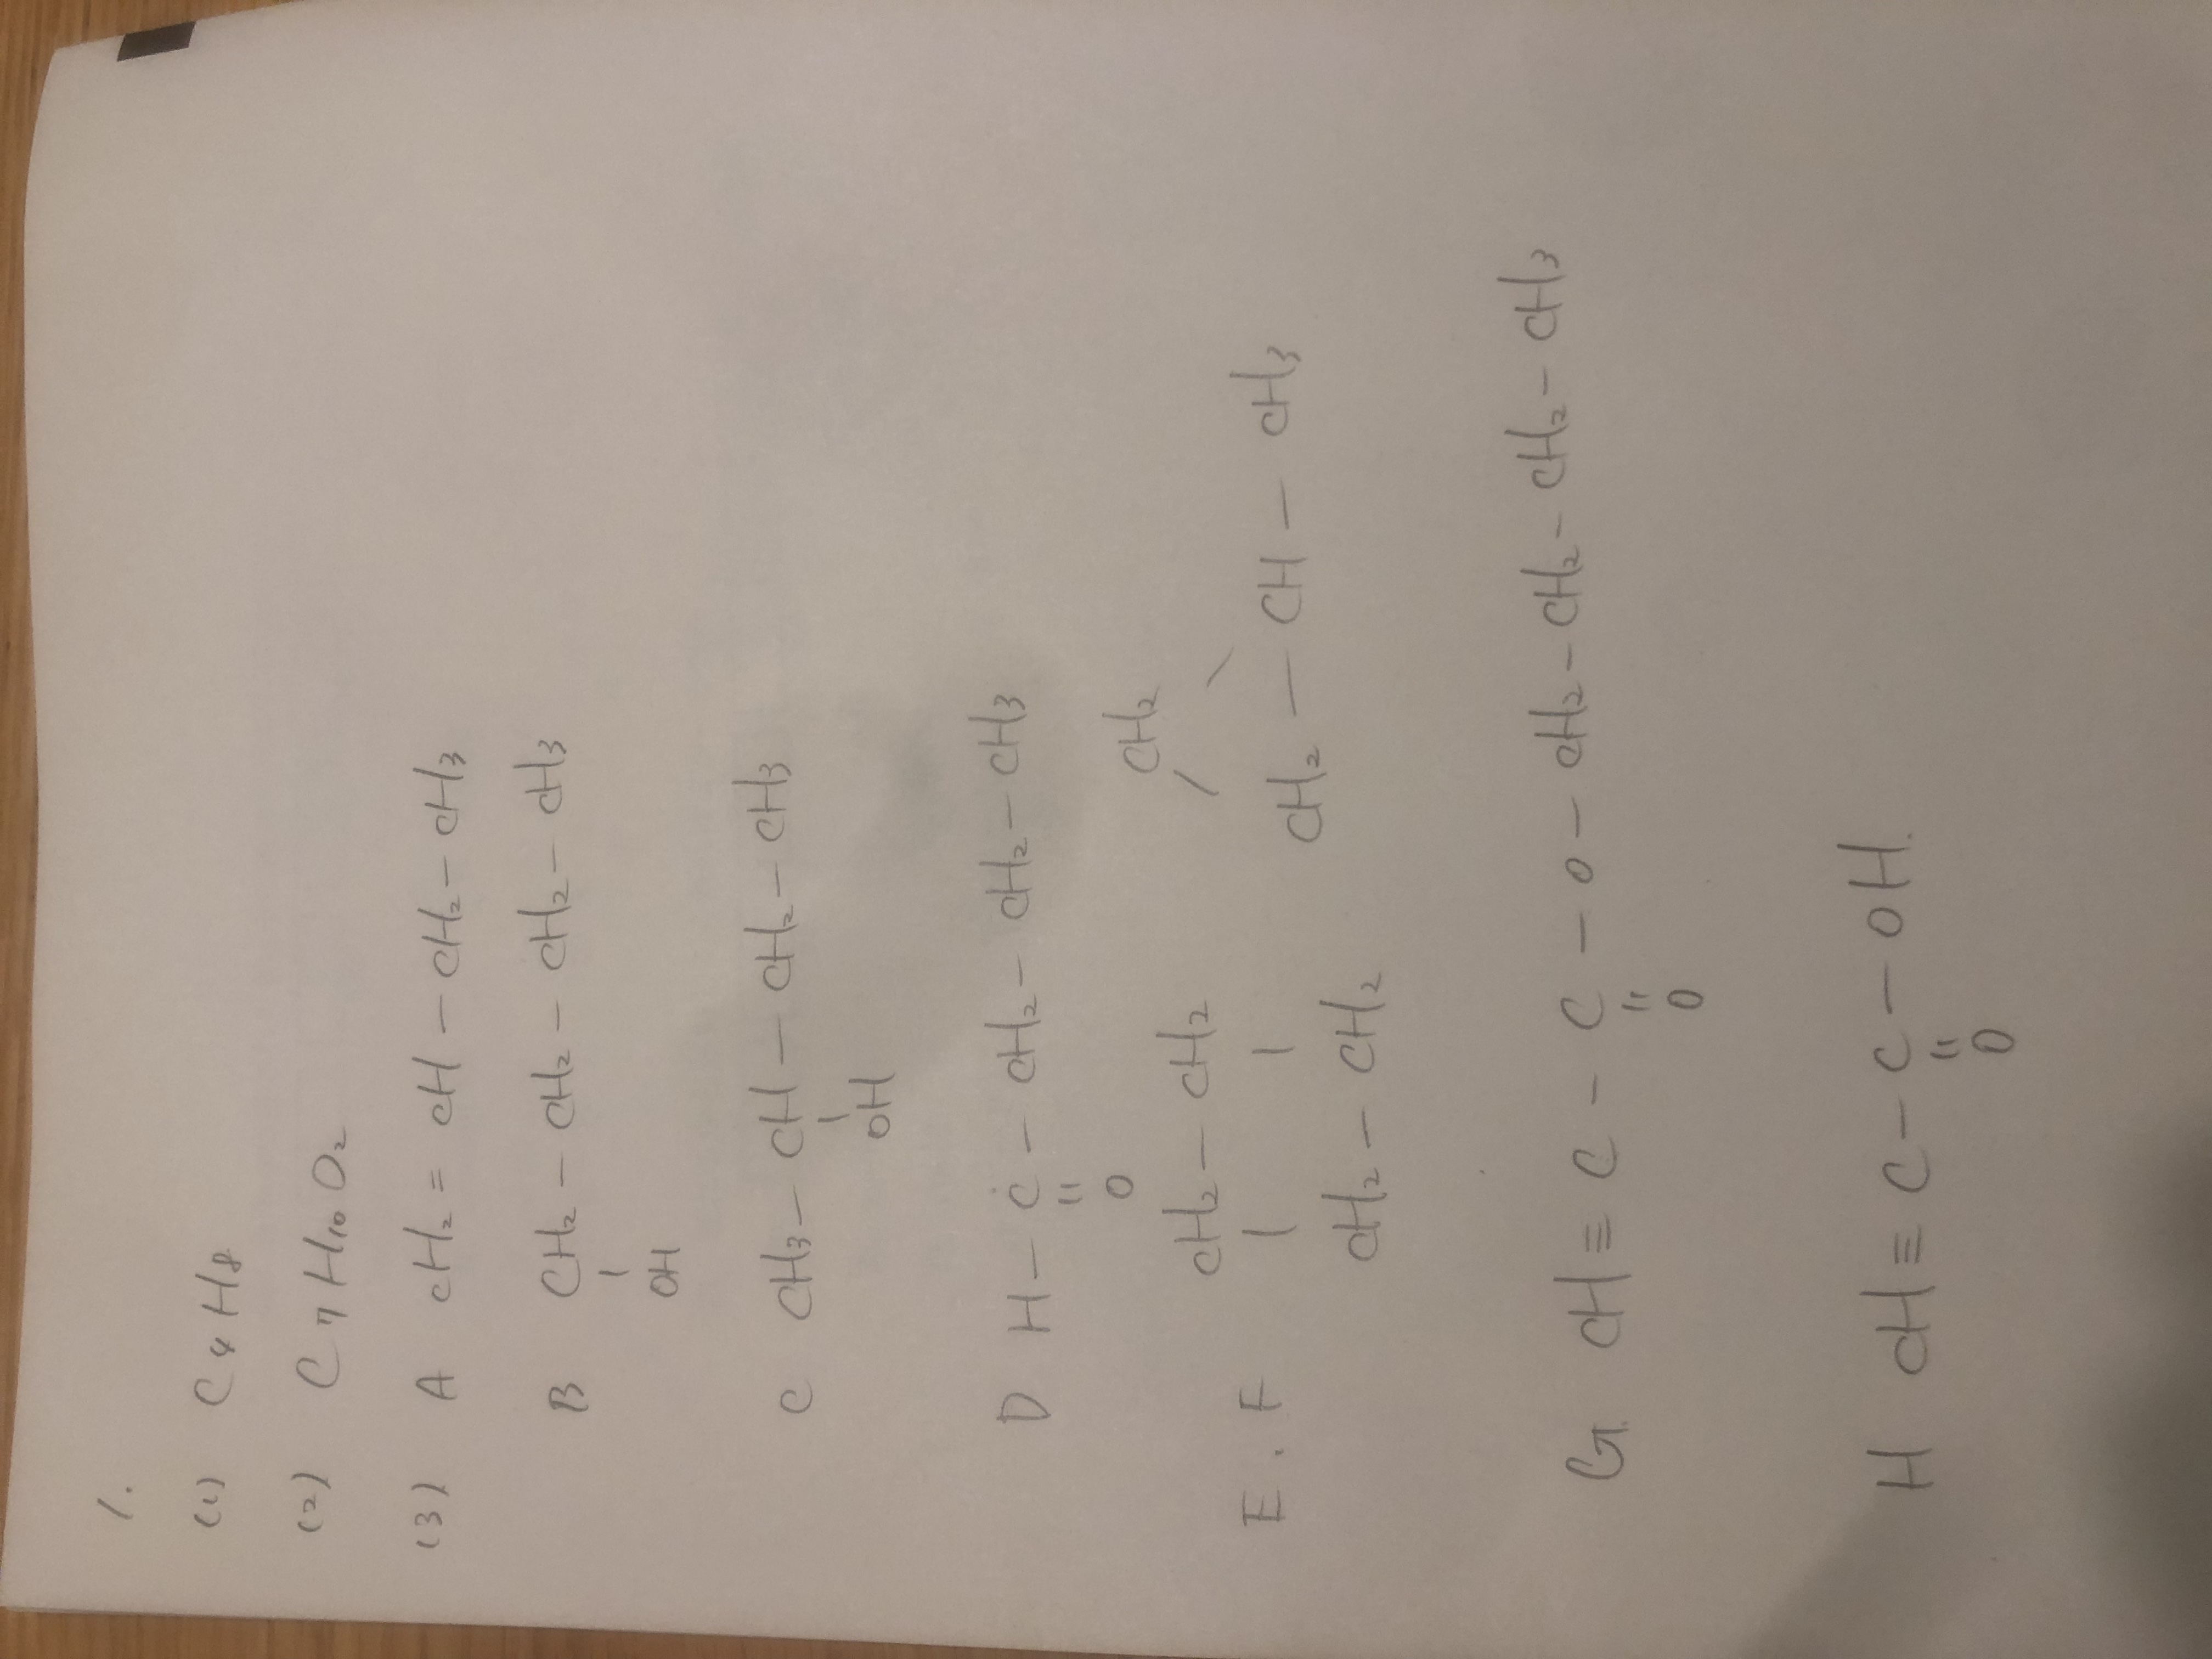 1.
(1) C4H8
(2) C7H10O2
(3) A CH2=CH-CH2-CH3
B CH2-CH2-CH2-CH3
OH
C CH3-CH-CH2-CH3
OH
D H-C-CH2-CH2-CH3
O
CH2
E.F CH2-CH2 CH2-CH-CH3
CH2-CH2
G CH≡C-C-O-CH2-CH2-CH2-CH3
O
H CH≡C-C-OH.
O